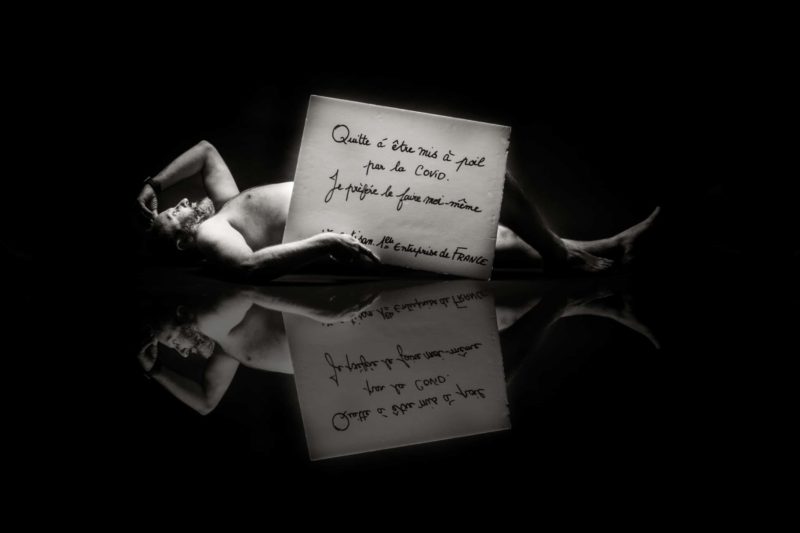 Quitte á être mis à poil
par la COViD.
Je préfère le faire moi-même
artisan. 1ère Entreprise de FRANCE